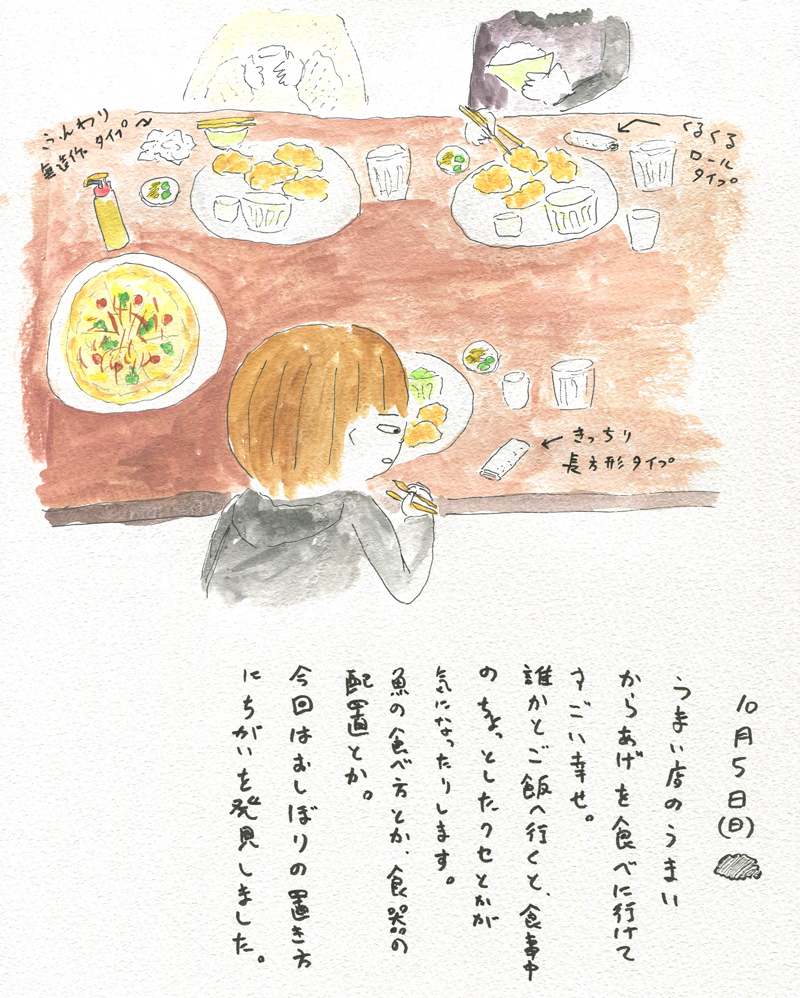 ふんわり
無造作タイプ
くるくる
ロール
タイプ
きっちり
長方形タイプ
10月5日(日)
うまい店のうまい
からあげを食べに行けて
すごい幸せ。
誰かとご飯へ行くと、食事中
のちょっとしたクセとかが
気になったりします。
魚の食べ方とか、食器の
配置とか。
今回はおしぼりの置き方
にちがいを発見しました。